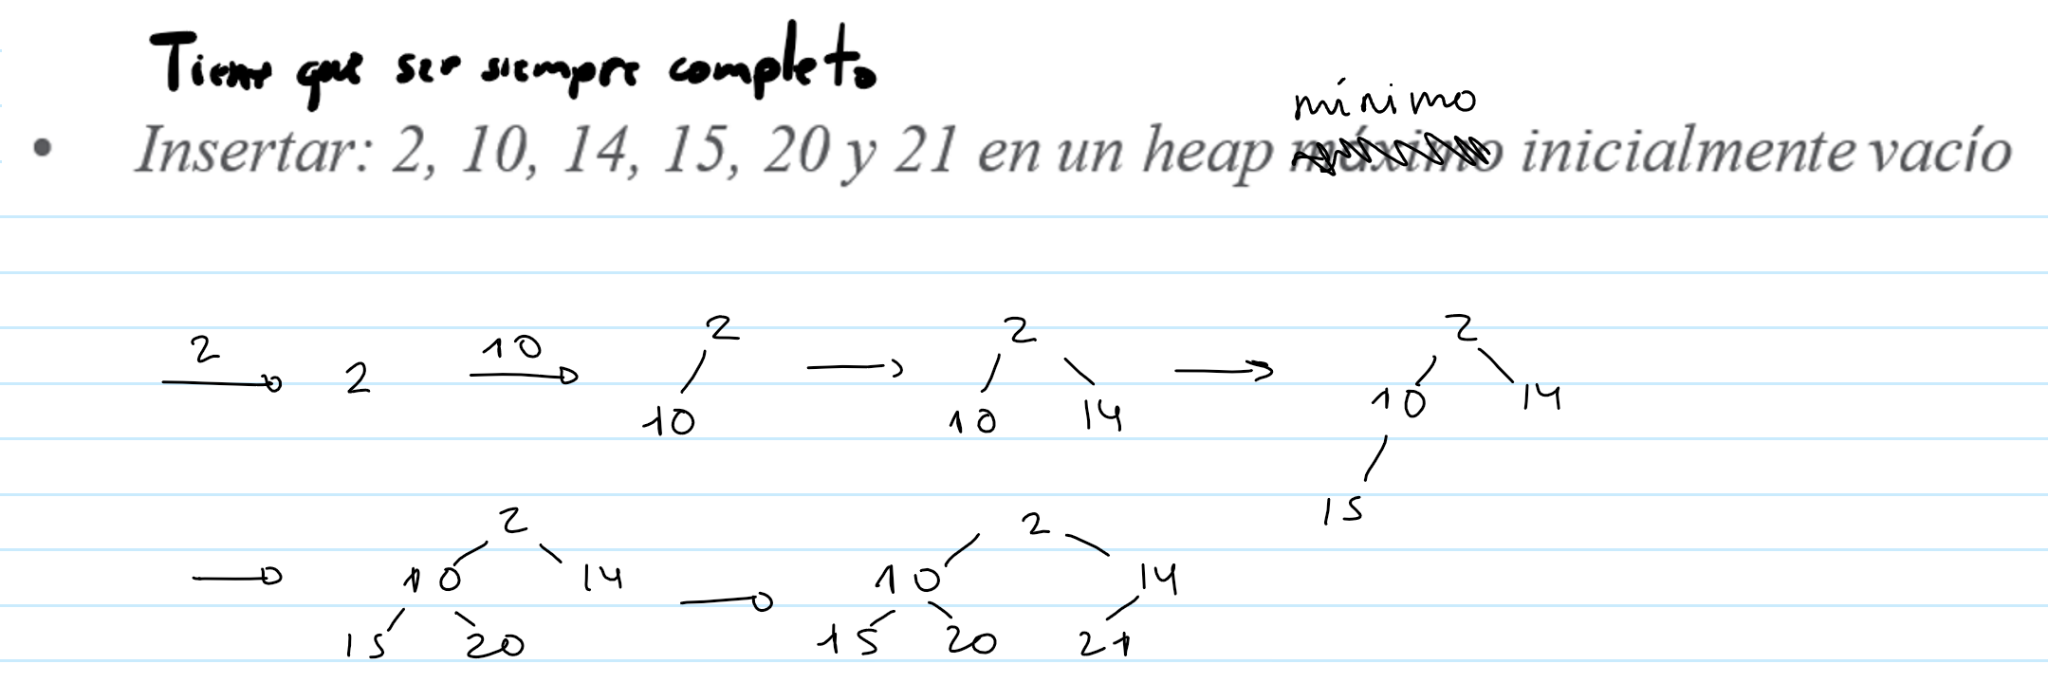 Tiene que ser siempre completo
mínimo
• Insertar: 2, 10, 14, 15, 20 y 21 en un heap máximo inicialmente vacío
2 10 2 2 2
2 10 10 14 10 14
15
2 2
10 14 10 14
15 20 15 20 21